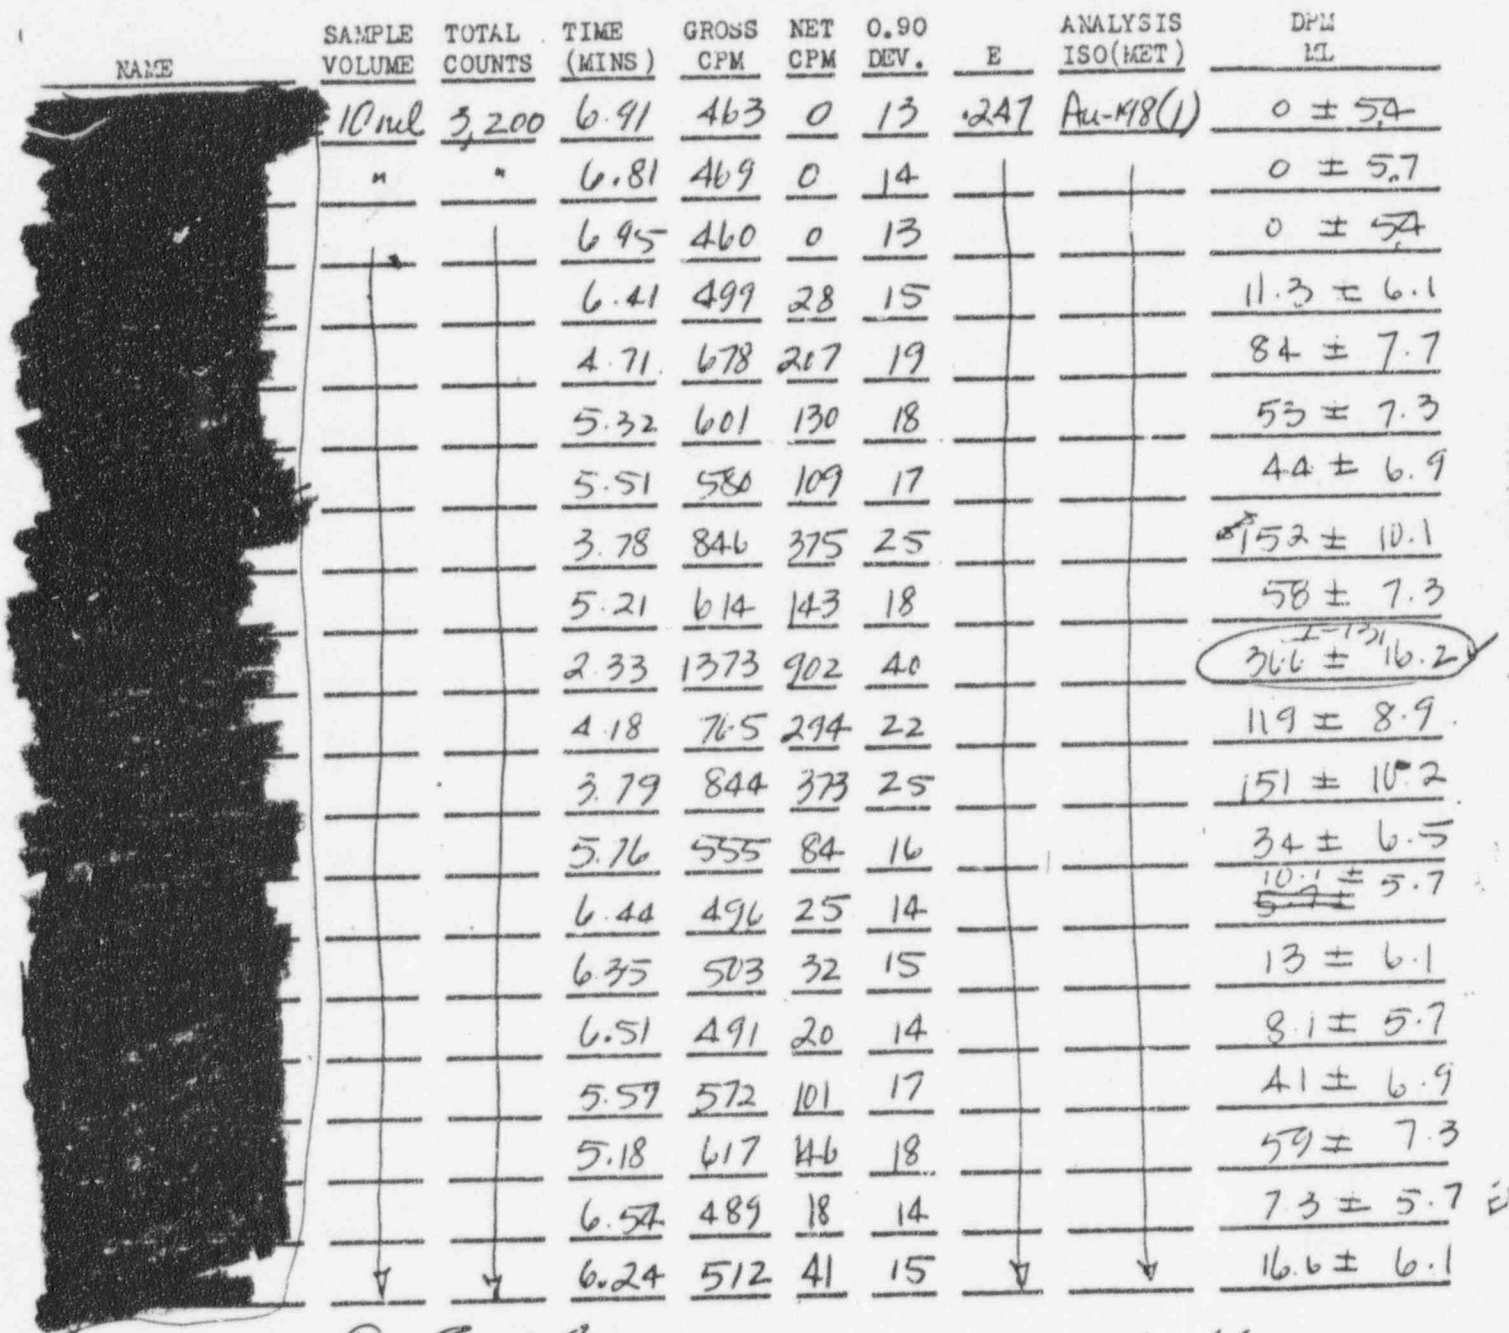 SAMPLE TOTAL TIME GROSS NET 0.90 ANALYSIS DPM
NAME VOLUME COUNTS (MINS) CPM CPM DEV. E ISO(MET) ML
10 ml 3,200 6.91 463 0 13 .247 Au-198(1) 0 ± 5.4
" " 6.81 469 0 14 0 ± 5.7
" 6.95 460 0 13 0 ± 5.4
6.41 499 28 15 11.3 ± 6.1
4.71 678 207 19 84 ± 7.7
5.32 601 130 18 53 ± 7.3
5.51 580 109 17 44 ± 6.9
3.78 846 375 25 152 ± 10.1
5.21 614 143 18 58 ± 7.3
I-131
2.33 1373 902 40 366 ± 16.2
4.18 765 294 22 119 ± 8.9
3.79 844 373 25 151 ± 10.2
5.76 555 84 16 34 ± 6.5
6.44 496 25 14 10.1 ± 5.7
6.35 503 32 15 13 ± 6.1
6.51 491 20 14 8.1 ± 5.7
5.59 572 101 17 41 ± 6.9
5.18 617 146 18 59 ± 7.3
6.54 489 18 14 7.3 ± 5.7
6.24 512 41 15 16.6 ± 6.1